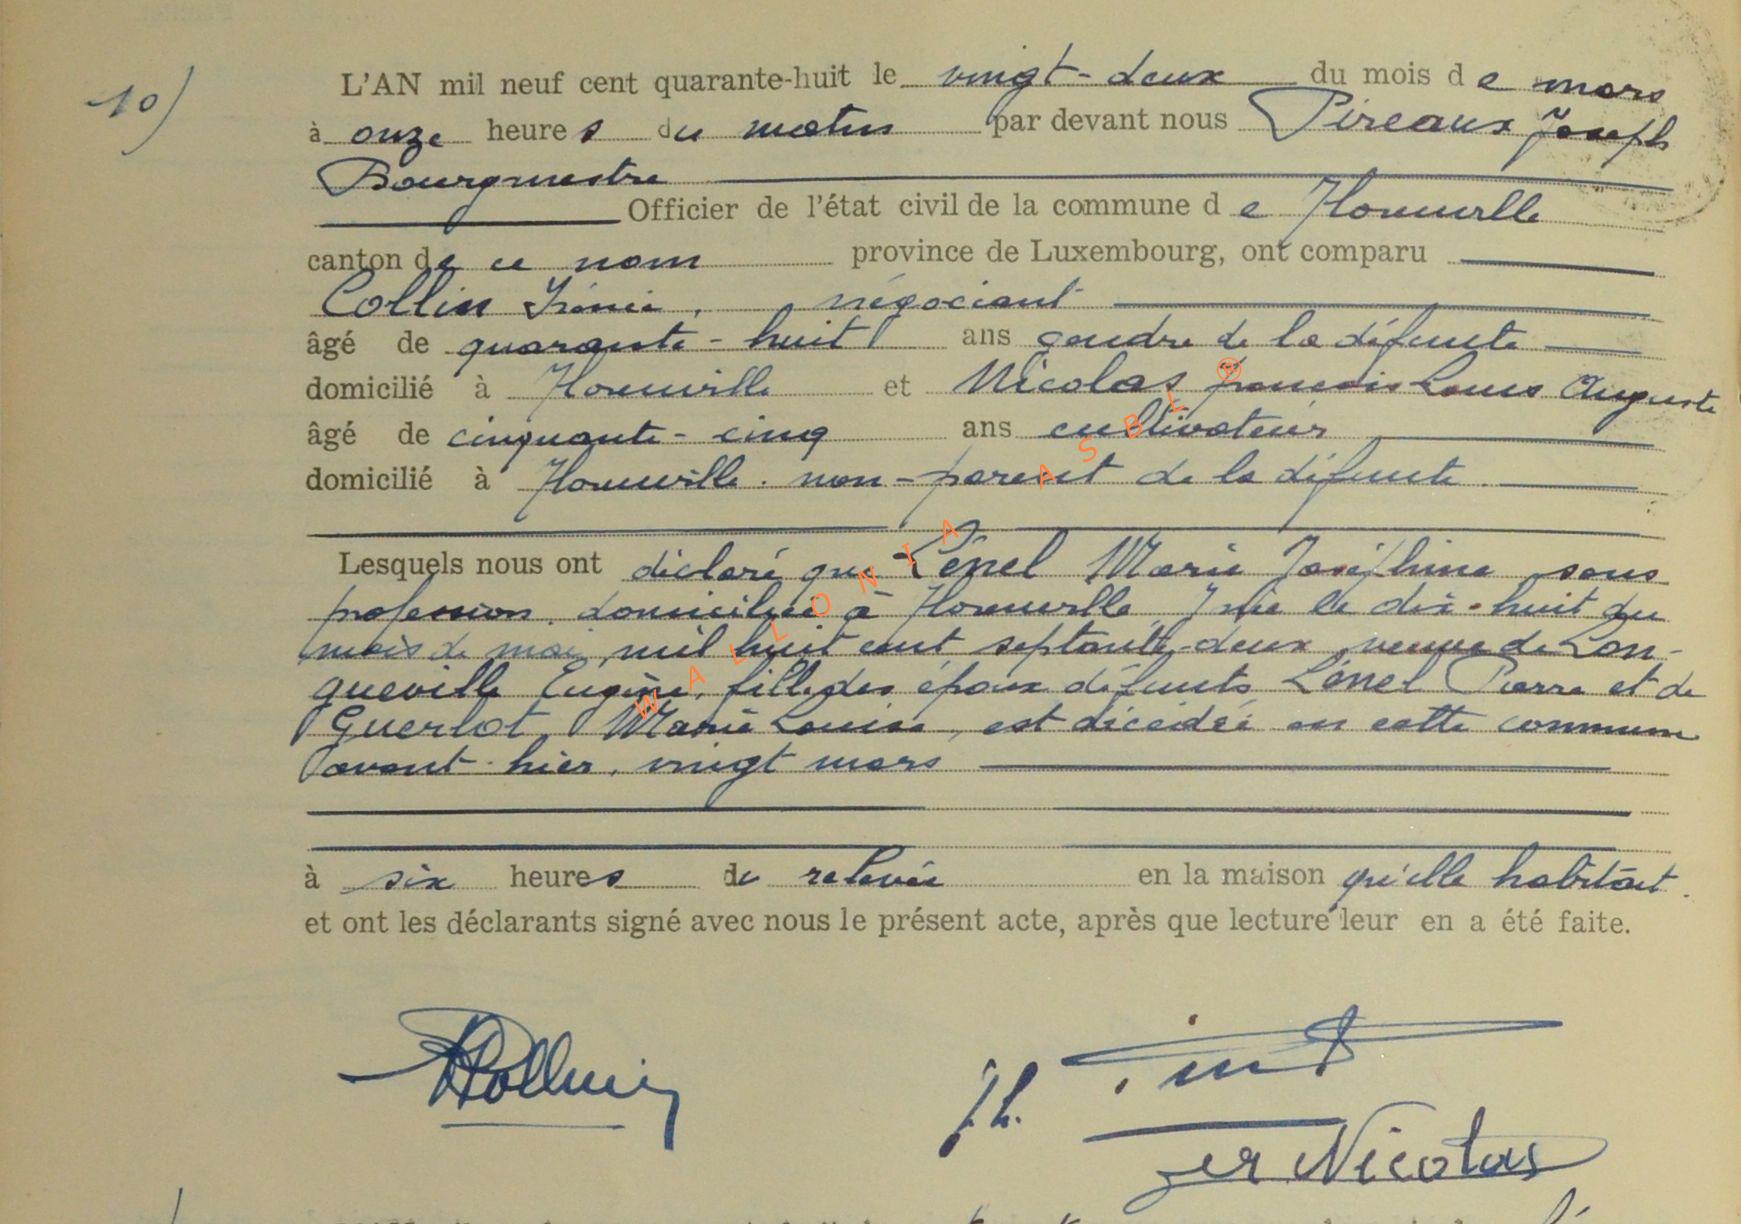 10)
L'AN mil neuf cent quarante-huit le vingt-deux du mois de mars
à onze heures du matin par devant nous Pireaux Joseph
Bourgmestre
Officier de l'état civil de la commune de Homville
canton de ce nom province de Luxembourg, ont comparu
Collin Irénée, négociant
âgé de quarante-huit ans gendre de la défunte
domicilié à Homville et Nicolas françois Louis Auguste
âgé de cinquante-cinq ans cultivateur
domicilié à Homville. non-parent de la défunte.
Lesquels nous ont déclaré que Lénel Marie Joséphine sans
profession, domiciliée à Homville, y née le dix-huit du
mois de mai mil huit cent septante-deux veuve de Lon-
gueville Eugène, fille des époux défunts Lénel Pierre et de
Guerlot Marie Louise, est décédée en cette commune
avant-hier, vingt mars
à six heures de relevée en la maison qu'elle habitait.
et ont les déclarants signé avec nous le présent acte, après que lecture leur en a été faite.
Collin
Nicolas
WALLONIA ASBL ®